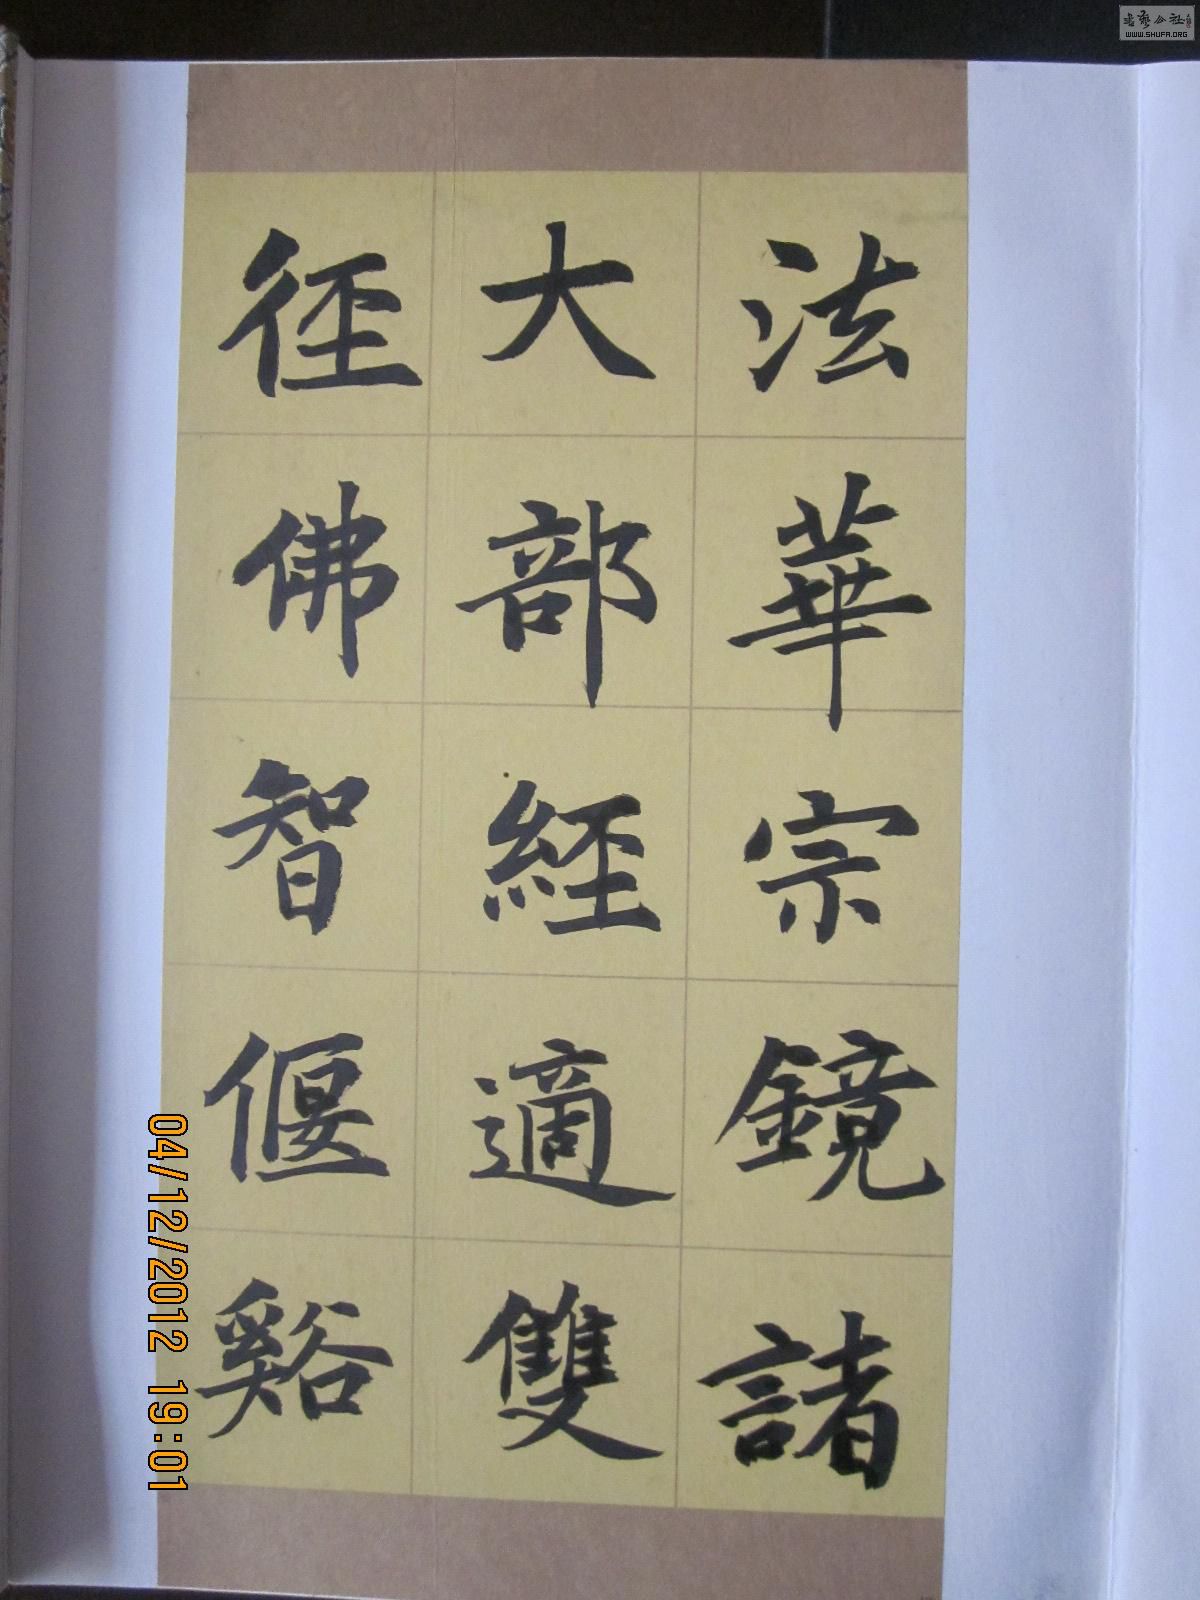 法華宗鏡諸
大部經適雙
徑佛智偃谿
04/12/2012 19:01
WWW.SHUFA.ORG